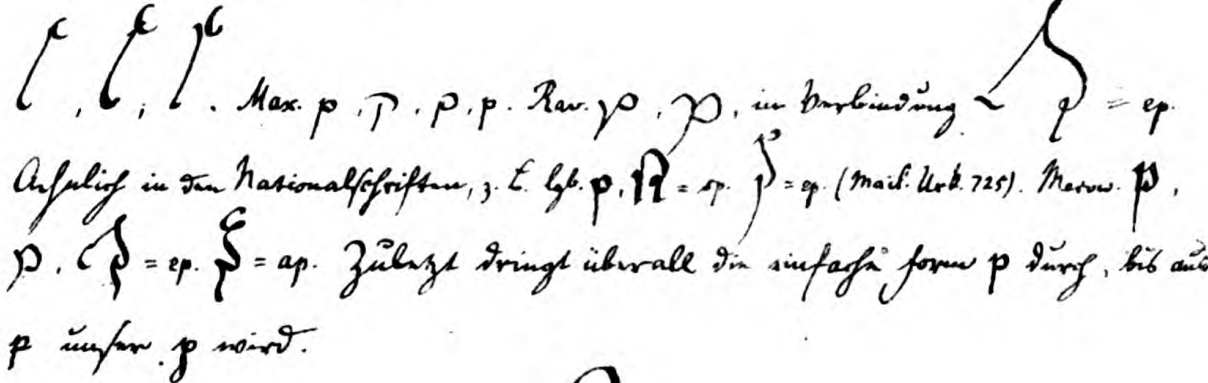 Max. p, p, p, p. Rav. p, p, in Verbindung = ep.
Aehnlich in den Nationalschriften, z. B. lgb. p, = sp. = ep. (Mail. Urk. 725). Merow. p,
p, = ep. = ap. Zuletzt dringt überall die einfache Form p durch, bis aus
p unser p wird.